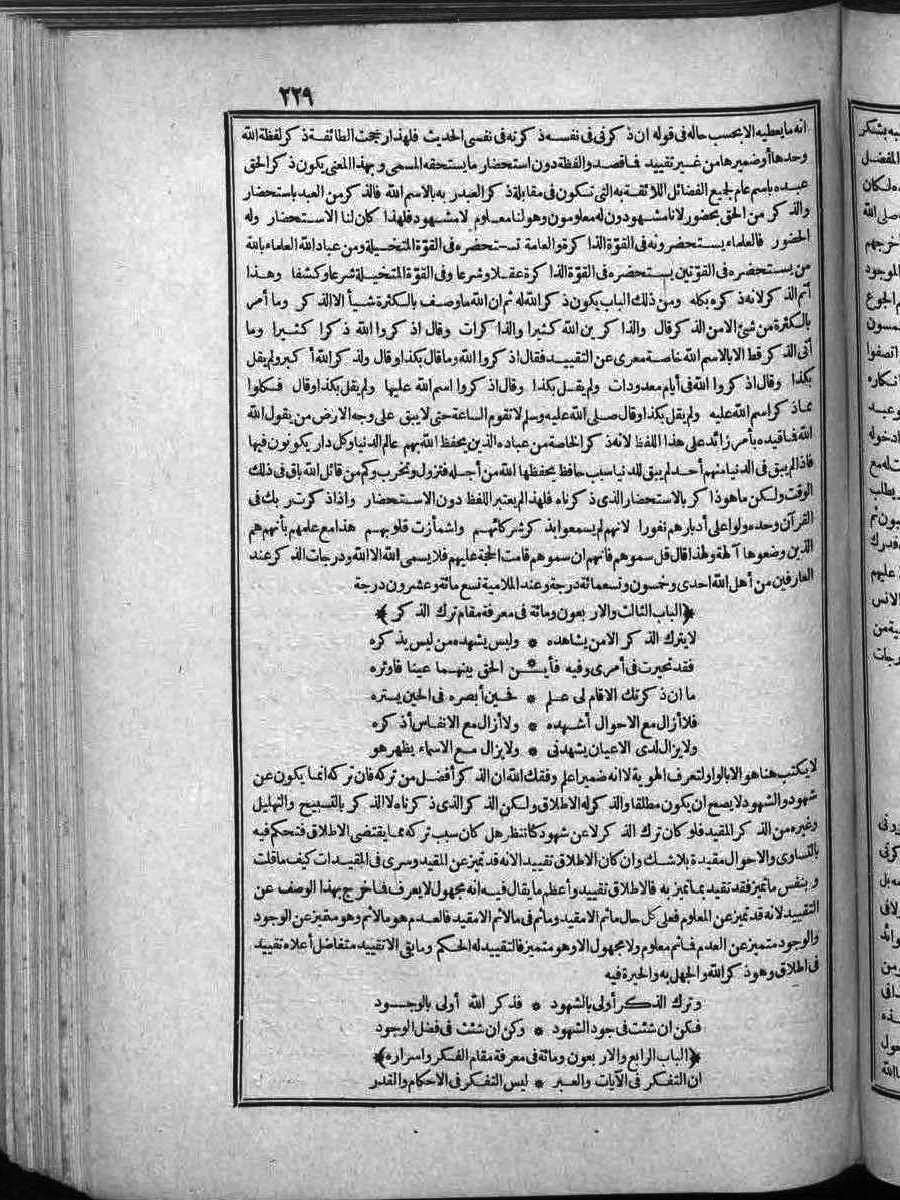 ٢٢٩
انه ما يعطيه الا بحسب حاله فى قوله ان ذكرنى فى نفسه ذكرته فى نفسى الحديث فلهذا رجحت الطائفة ذكر لفظة الله
وحدها أو ضميرها من غير تقييد فاقصد والفظة دون استحضار ما يستحقه المسمى وبهذا المعنى يكون ذكر الحق
عبده باسم عام لجميع الفضائل اللائقة به التى تكون فى مقابلة ذكر العبد ربه بالاسم الله فالذكر من العبد باستحضار
والذكر من الحق بحضور لانا مشهودون له معلومون وهو لنا معلوم لا مشهود فلهذا كان لنا الاستحضار وله
الحضور فالعلماء يستحضرونه فى القوّة الذاكرة والعامة تستحضره فى القوّة المتخيلة ومن عباد الله العلماء بالله
من يستحضره فى القوّتين يستحضره فى القوّة الذاكرة عقلا وشرعا وفى القوّة المتخيلة شرعا وكشفا وهذا
أتم الذكر لانه ذكره بكله ومن ذلك الباب يكون ذكر الله له ثم ان الله ما وصف بالكثرة شيأ الا الذكر وما أمر
بالكثرة من شئ الا من الذكر قال والذاكرين الله كثيرا والذاكرات وقال اذكروا الله ذكرا كثيرا وما
أتى الذكر قط الا بالاسم الله خاصة معرى عن التقييد فقال اذكروا الله وما قال بكذا وقال ولذكر الله أكبر ولم يقل
بكذا وقال اذكروا الله فى أيام معدودات ولم يقل بكذا وقال اذكروا اسم الله عليها ولم يقل بكذا وقال فكلوا
مما ذكر اسم الله عليه ولم يقل بكذا وقال صلى الله عليه وسلم لا تقوم الساعة حتى لا يبقى على وجه الارض من يقول الله
الله فما قيده بأمر زائد على هذا اللفظ لانه ذكر الخاصة من عباده الذين يحفظ الله بهم عالم الدنيا وكل دار يكونون فيها
فاذا لم يبق فى الدنيا منهم أحد لم يبق للدنيا سبب حافظ يحفظها الله من أجله فتزول وتخرب وكم من قائل الله باق فى ذلك
الوقت ولكن ما هو ذاكر بالاستحضار الذى ذكرناه فلهذا لم يعتبر اللفظ دون الاستحضار واذا ذكرت ربك فى
القرآن وحده ولوا على أدبارهم نفورا لانهم لم يسمعوا بذكر شركائهم واشمأزت قلوبهم هذا مع علمهم بأنهم هم
الذين وضعوها آلهة ولهذا قال قل سموهم فانهم ان سموهم قامت الحجة عليهم فلا يسمى الله الا الله ودرجات الذكر عند
العارفين من أهل الله احدى وخمسون وتسعمائة درجة وعند الملامية تسع مائة وعشرون درجة
﴿الباب الثالث والاربعون ومائة فى معرفة مقام ترك الذكر﴾
لا يترك الذكر الا من يشاهده * وليس يشهده من ليس يذكره
فقد تحيرت فى أمرى وفيه فأيـ * ـن الحق بينهما عينا فاوثره
ما ان ذكرتك الا قام لى علم * فحين أبصره فى الحين يستره
فلا أزال مع الاحوال أشهده * ولا أزال مع الانفاس أذكره
ولا يزال لدى الاعيان يشهدنى * ولا يزال مع الاسماء يظهر هو
لا يكتب هنا هو الا بالواو لتعرف الهوية لا انه ضمير اعلم وفقك الله ان الذكر أفضل من تركه فان تركه انما يكون عن
شهود والشهود لا يصح ان يكون مطلقا والذكر له الاطلاق ولكن الذكر الذى ذكرناه لا الذكر بالتسبيح والتهليل
وغيره من الذكر المقيد فلو كان ترك الذكر لا عن شهود كنا ننظر هل كان سبب تركه مما يقتضى الاطلاق فنحكم فيه
بالتساوى والاحوال مقيدة بلا شك وان كان الاطلاق تقييد الانه قد تميز عن المقيد وسرى فى المقيدات كيف ما قلت
وبنفس ما تميز فقد تقيد بما تميز به فالاطلاق تقييد وأعظم ما يقال فيه انه مجهول لا يعرف فما خرج بهذا الوصف عن
التقييد لانه قد تميز عن المعلوم فعلى كل حال ما ثم الا مقيد وما ثم فى ما لا ثم الا مقيد فالعدم هو ما لا ثم وهو متميز عن الوجود
والوجود متميز عن العدم فما ثم معلوم ولا مجهول الا وهو متميز فالتقييد له الحكم وما بقى الا تقييد متفاضل أعلاه تقييد
فى اطلاق وهو ذكر الله والجهل به والحيرة فيه
وترك الذكر أولى بالشهود * فذكر الله أولى بالوجود
فكن ان شئت فى جود الشهود * وكن ان شئت فى فضل الوجود
﴿الباب الرابع والاربعون ومائة فى معرفة مقام الفكر واسراره﴾
ان التفكر فى الآيات والعبر * ليس التفكر فى الاحكام والقدر